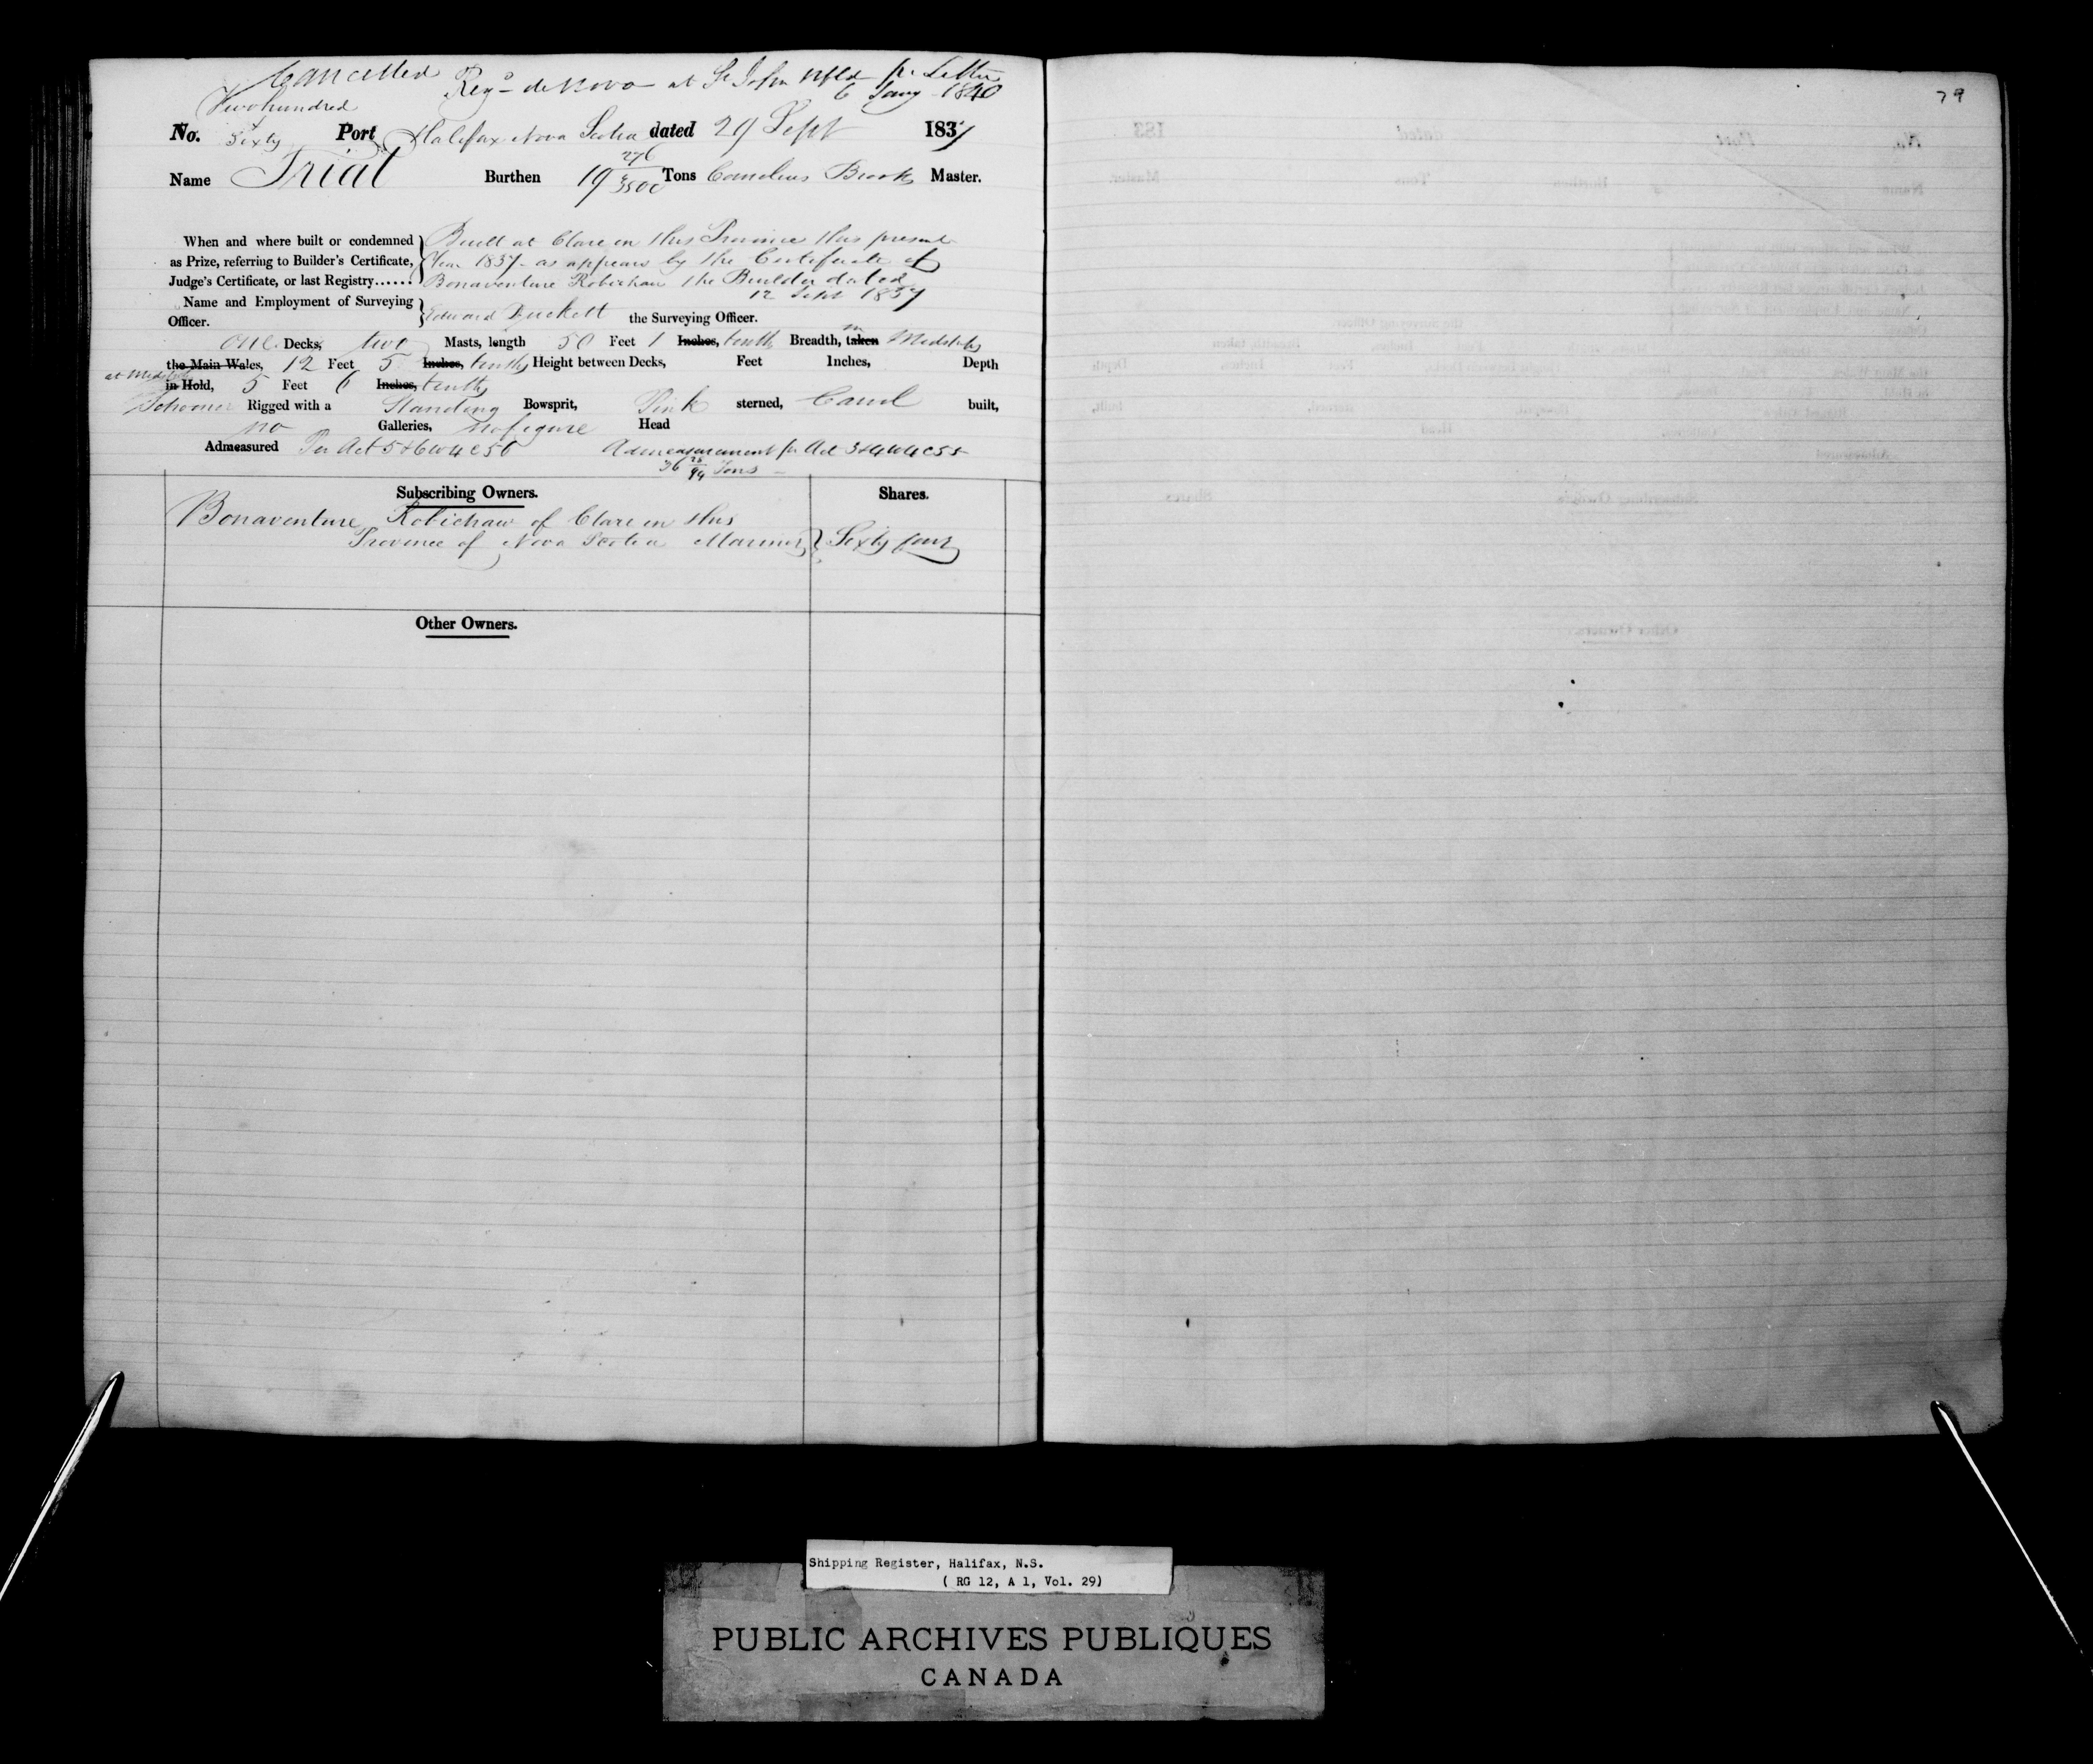 Cancelled Regd de Novo at St Johns Nfld pr Letter
6 Jany 1840
79
Two hundred
No. Sixty Port Halifax Nova Scotia dated 29 Sept 1837
Name Trial Burthen 19 276/3500 Tons Cornelius Brooks Master.
When and where built or condemned
as Prize, referring to Builder's Certificate,
Judge's Certificate, or last Registry......
Built at Clare in this Province this present
Year 1837 - as appears by the Certificate of
Bonaventure Robichaw the Builder dated
12 Sept 1837
Name and Employment of Surveying
Officer.
Edward Duckett the Surveying Officer.
one Decks, two Masts, length 50 Feet 1 Inches, tenth Breadth, taken in Midships
the Main Wales, 12 Feet 5 Inches, tenths Height between Decks, Feet Inches, Depth
at Midships in Hold, 5 Feet 6 Inches, tenths
Schooner Rigged with a Standing Bowsprit, Pink sterned, Carvel built,
no Galleries, no figure Head
Admeasured Per Act 5 & 6 W 4 C 56 Admeasurement pr Act 3 & 4 W 4 C 55
36 25/94 Tons
Subscribing Owners. Shares.
Bonaventure Robichaw of Clare in this
Province of Nova Scotia Mariner Sixty four
Other Owners.
Shipping Register, Halifax, N.S.
( RG 12, A 1, Vol. 29)
PUBLIC ARCHIVES PUBLIQUES
CANADA